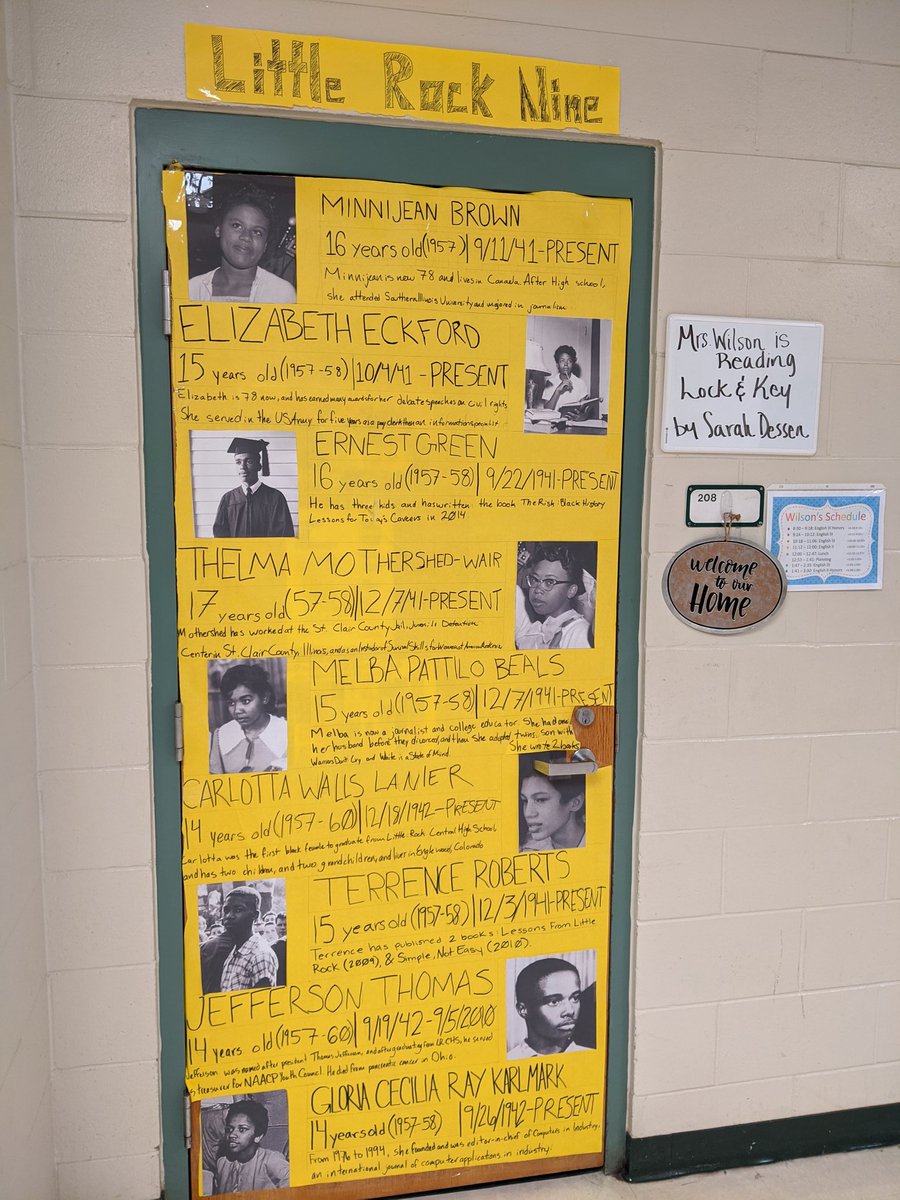 Little Rock Nine
MINNIJEAN BROWN
16 years old (1957) | 9/11/41-PRESENT
Minnijean is now 78 and lives in Canada. After High school,
she attended Southern Illinois University and majored in journalism
ELIZABETH ECKFORD
15 years old (1957-58) | 10/4/41 - PRESENT
Elizabeth is 78 now, and has earned many awards for her debate speeches on civil rights
She served in the US Army for five years as a pay clerk then an information specialist
ERNEST GREEN
16 years old (1957-58) | 9/22/1941-PRESENT
He has three kids and has written the book The Risk: Black History
Lessons for Today's Careers in 2014.
THELMA MOTHERSHED-WAIR
17 years old (57-58) | 12/7/41-PRESENT
Mothershed has worked at the St. Clair County Jail, Detention
Center in St. Clair County, Illinois, and as an Instructor of Survival Skills for Women at American
MELBA PATTILO BEALS
15 years old (1957-58) | 12/7/1941-PRESENT
Melba is now a journalist and college educator. She had one
her husband before they divorced, and then she adopted twins. son with
She wrote 2 books
Warriors Don't Cry and White is a State of Mind.
CARLOTTA WALLS LANIER
14 years old (1957-60) | 12/18/1942-PRESENT
Carlotta was the first black female to graduate from Little Rock Central High School,
and has two children, and two grandchildren, and lives in Englewood, Colorado
TERRENCE ROBERTS
15 years old (1957-58) | 12/3/1941-PRESENT
Terrence has published 2 books: Lessons From Little
Rock (2009), & Simple, Not Easy (2010).
JEFFERSON THOMAS
14 years old (1957-60) | 9/19/42-9/5/2010
Jefferson was named after president Thomas Jefferson, and after graduating from LRCHS, he served
as treasurer for NAACP Youth Council. He died from pancreatic cancer in Ohio.
GLORIA CECILIA RAY KARLMARK
14 years old (1957-58) | 9/26/1942-PRESENT
From 1976 to 1994, she founded and was editor-in-chief of Computers in Industry,
an international journal of computer applications in industry.
Mrs. Wilson is
Reading
Lock & Key
by Sarah Dessen
208
Wilson's Schedule
welcome
to our
Home